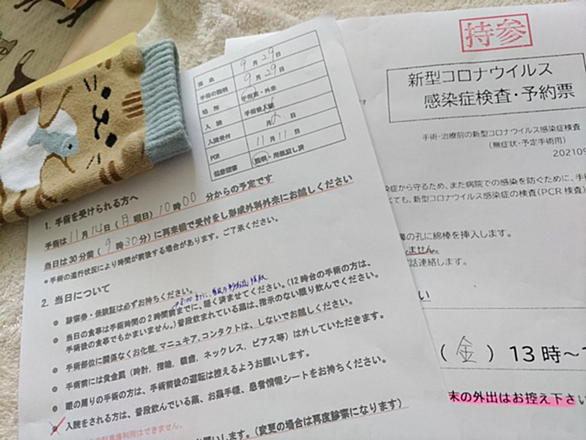 9月29日
手術の説明 9月29日
手術室・外来
入院受付
PCR 11月11日
説明・用紙渡し済
1. 手術を受けられる方へ
手術は11月14日(月曜日)10時00分からの予定です
当日は30分前(9時30分)に再来機で受付をし形成外科外来にお越しください
*手術の進行状況により時間が前後する場合があります。ご了承ください。
2. 当日について
診察券・保険証は必ずお持ちください。
当日の食事は手術時間の2時間前までに、軽く済ませてください。(12時台の手術の方は、
手術後の食事でもかまいません。)普段飲まれている薬は、指示のない限り飲んでください。
手術部位に関係なくお化粧、マニキュア、コンタクトは、しないでお越しください。
手術前には貴金属(時計、指輪、眼鏡、ネックレス、ピアス等)は外していただきます。
眼の周りの手術の方は、手術前後の運転は控えるようお願いします。
入院をされる方は、普段飲んでいる薬、お薬手帳、患者情報シートをお持ちください。
利用はできません。
お願いします。(変更の場合は再度診察になります)
持参
新型コロナウイルス
感染症検査・予約票
手術・治療前の新型コロナウイルス感染症検査
(無症状・予定手術用)
202109
症から守るため、また病院での感染を防ぐために、手術
ても、新型コロナウイルス感染症の検査(PCR検査)
鼻の孔に綿棒を挿入します。
ません。
話連絡します。
い
(金)13時～1
末の外出はお控え下さい